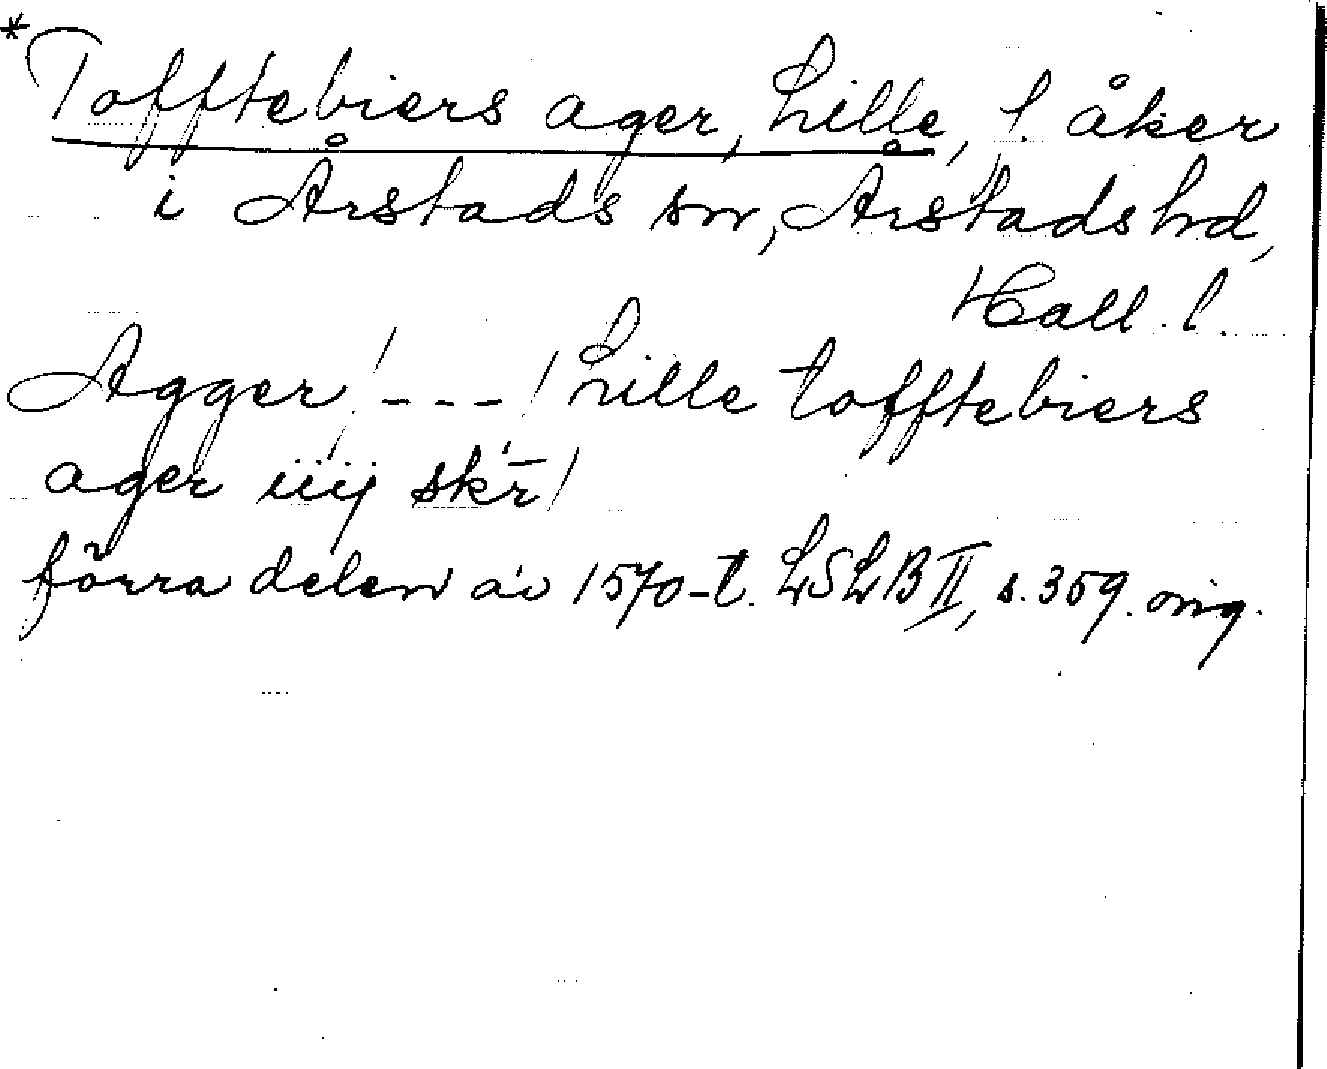 *Tofftebiers ager, Lille, f. åker
i Årstads sn, Årstads hd,
Hall. l.
Agger /---/ Lille tofftebiers
ager iiij skr̄/
förra delen av 1570-t. LSLB II, s. 359. orig.